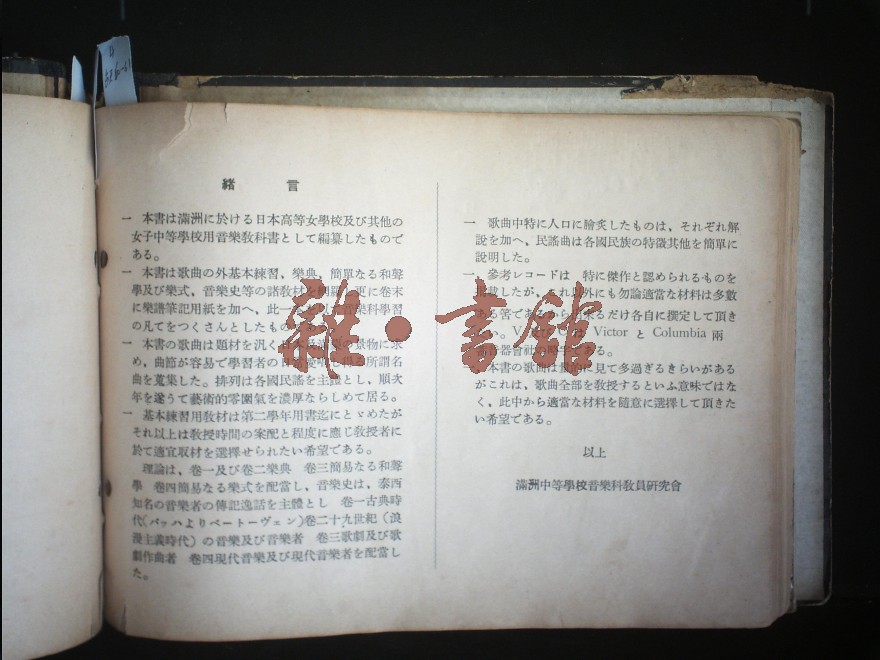 緒言
一 本書は滿洲に於ける日本高等女學校及び其他の
女子中等學校用音樂敎科書として編纂したもので
ある。
一 本書は歌曲の外基本練習、樂典、簡單なる和聲
學及び樂式、音樂史等の諸敎材を網羅し更に卷末
に樂譜筆記用紙を加へ、此一
音樂科學習
の凡てをつくさんとしたもの
一 本書の歌曲は題材を汎く日本及
の景物に求
め、曲節が容易で學習者の日
所謂名
曲を蒐集した。排列は各國民謠を主體とし、順次
年を逐うて藝術的雰圍氣を濃厚ならしめて居る。
一 基本練習用敎材は第二學年用書迄にとゞめたが
それ以上は敎授時間の案配と程度に應じ敎授者に
於て適宜取材を選擇せられたい希望である。
理論は、卷一及び卷二樂典 卷三簡易なる和聲
學 卷四簡易なる樂式を配當し、音樂史は、泰西
知名の音樂者の傳記逸話を主體とし 卷一古典時
代(バッハよりベートーヴェン)卷二十九世紀(浪
漫主義時代)の音樂及び音樂者 卷三歌劇及び歌
劇作曲者 卷四現代音樂及び現代音樂者を配當し
た。
一 歌曲中特に人口に膾炙したものは、それぞれ解
說を加へ、民謠曲は各國民族の特徵其他を簡單に
說明した。
一 參考レコードは 特に傑作と認められるものを
揭載したが、それ以外にも勿論適當な材料は多數
ある筈であるから出來るだけ各自に撰定して頂き
たい。V
は Victor と Columbia 兩
蓄音器會社の略字である。
一 本書の歌曲は
に見て多過ぎるきらいがある
がこれは、歌曲全部を敎授するといふ意味ではな
く、此中から適當な材料を隨意に選擇して頂きた
い希望である。
以上
滿洲中等學校音樂科敎員硏究會
雜·書館